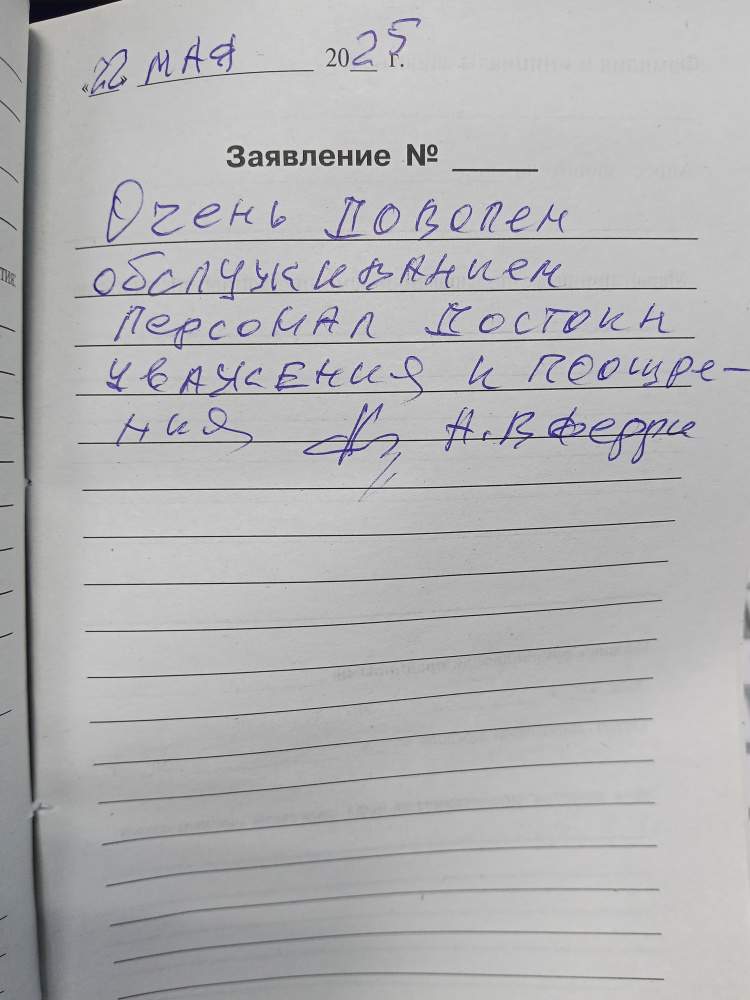 «22» МАЯ 2025 г.
Заявление №
Очень доволен
обслуживанием
персонал достоин
уважения и поощре-
ния А.В Ферри
тия